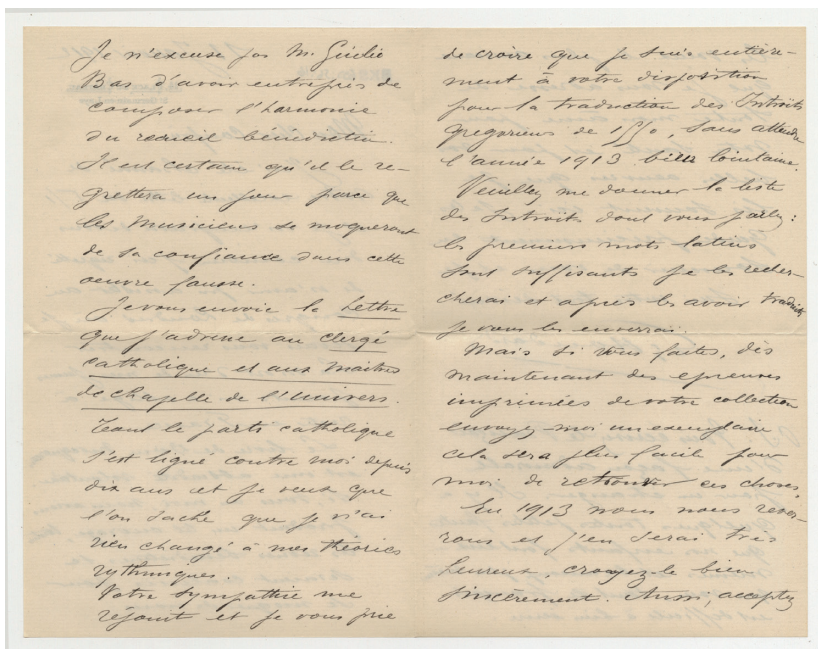 Je n'excuse pas M. Giulio
Bas d'avoir entrepris de
composer l'harmonie
du recueil bénédictin.
Il est certain qu'il le re-
grettera un jour parce que
les musiciens se moqueront
de sa confiance dans cette
oeuvre fausse.
Je vous envoie la Lettre
que j'adresse au clergé
catholique et aux Maîtres
de chapelle de l'Univers.
Tout le parti catholique
s'est ligué contre moi depuis
dix ans et je veux que
l'on sache que je n'ai
rien changé à mes théories
rythmiques.
Votre sympathie me
réjouit et je vous prie
de croire que je suis entière-
ment à votre disposition
pour la traduction des Introïts
gregoriens de 1550, sans attendre
l'année 1913 bien lointaine.
Veuillez me donner la liste
des Introïts dont vous parlez :
les premiers mots latins
sont suffisants je les recher-
cherai et après les avoir traduits
je vous les enverrai.
Mais si vous faites, dès
maintenant des epreuves
imprimées de votre collection
envoyez moi un exemplaire
cela sera plus facile pour
moi de retrouver ces choses.
En 1913 nous nous rever-
rons et j'en serai très
heureux, croyez-le bien
sincèrement. Aussi, acceptez